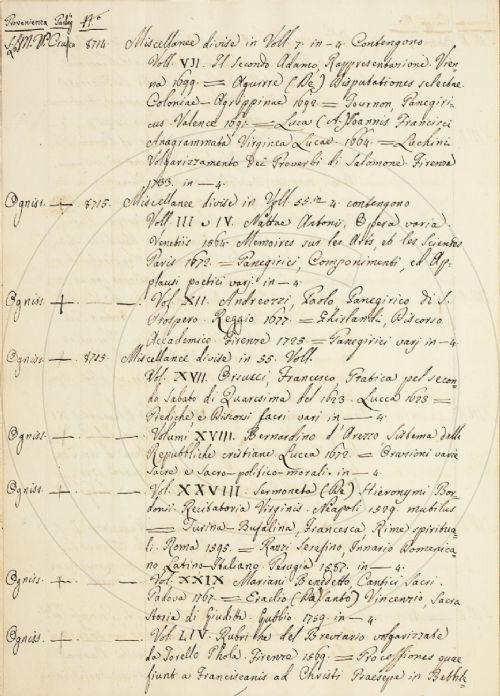 Provenienza Palch. N.º
S. M. N.ª Croce 8714. Miscellanee divise in Voll. 7. in - 4. Contengono
Voll. VII. Il Secondo Adamo, Rappresentazione. Vien-
na 1699. = Aguirre (De) Disputationes selectae
Coloniae-Agrippinae 1692. = Tournon, Panegiri-
cus. Valence 1691. = Luca (A. Joannis Francisci
Anagrammata Virginea Lucae 1664. = Luchini
Volgarizzamento Dei Proverbi di Salomone. Firenze
1733. in - 4.
Ogniss. + 8715. Miscellanee divise in Voll. 55. in 4. contengono
Voll. III e IV. Mattae Antonii, Opera varia.
Venetiis 1564. Memoires sur les Arts, et les Sciences
Paris 1672. = Panegirici, Componimenti, ed Ap-
plausi poetici varj. in - 4.
Ogniss. + — —. Vol. XII. Andreozzi, Paolo Panegirico di S.
Prospero. Reggio 1677. = Ghirlandi, Discorso
Accademico. Firenze 1725. = Panegirici varj in - 4.
Ogniss. + 8715. Miscellanee divise in 55. Voll.
Vol. XVII. Orsucci, Francesco, Pratica pel secon-
do Sabato di Quaresima del 1623. Lucca 1623 =
Prediche, e Discorsi sacri vari in — 4.
Ogniss. — — —. Volumi XVIII. Bernardino d'Arezzo Sistema delle
Repubbliche cristiane. Lucca 1672. = Orazioni varie
Sacre e Sacro-politico-morali. in - 4.
Ogniss. + — —. Vol. XXVIII. Sermoneta (De) Hieronymi Bor-
donii. Recitatoria Virginis. Neapoli 1599.
= Turina-Bufalina, Francesca, Rime spiritua-
li. Roma 1595. = Razzi Serafino, Innario Domenica-
no Latino-Italiano. Perugia 1587. in - 4.
Ogniss. + — —. Vol. XXIX Mariani Benedetto, Cantici Sacri.
Padova 1767. = Eraclio (Da Santo) Vincenzio, Sacra
Storia di Giuditta. Gubbio. 1759. in - 4.
Ogniss. — — —. Vol. LIV. Rubriche del Breviario volgarizzate
da Torello Phola. Firenze 1569. = Processiones quae
fiunt a Franciscanis ad Christi Praesepe in Bethle-